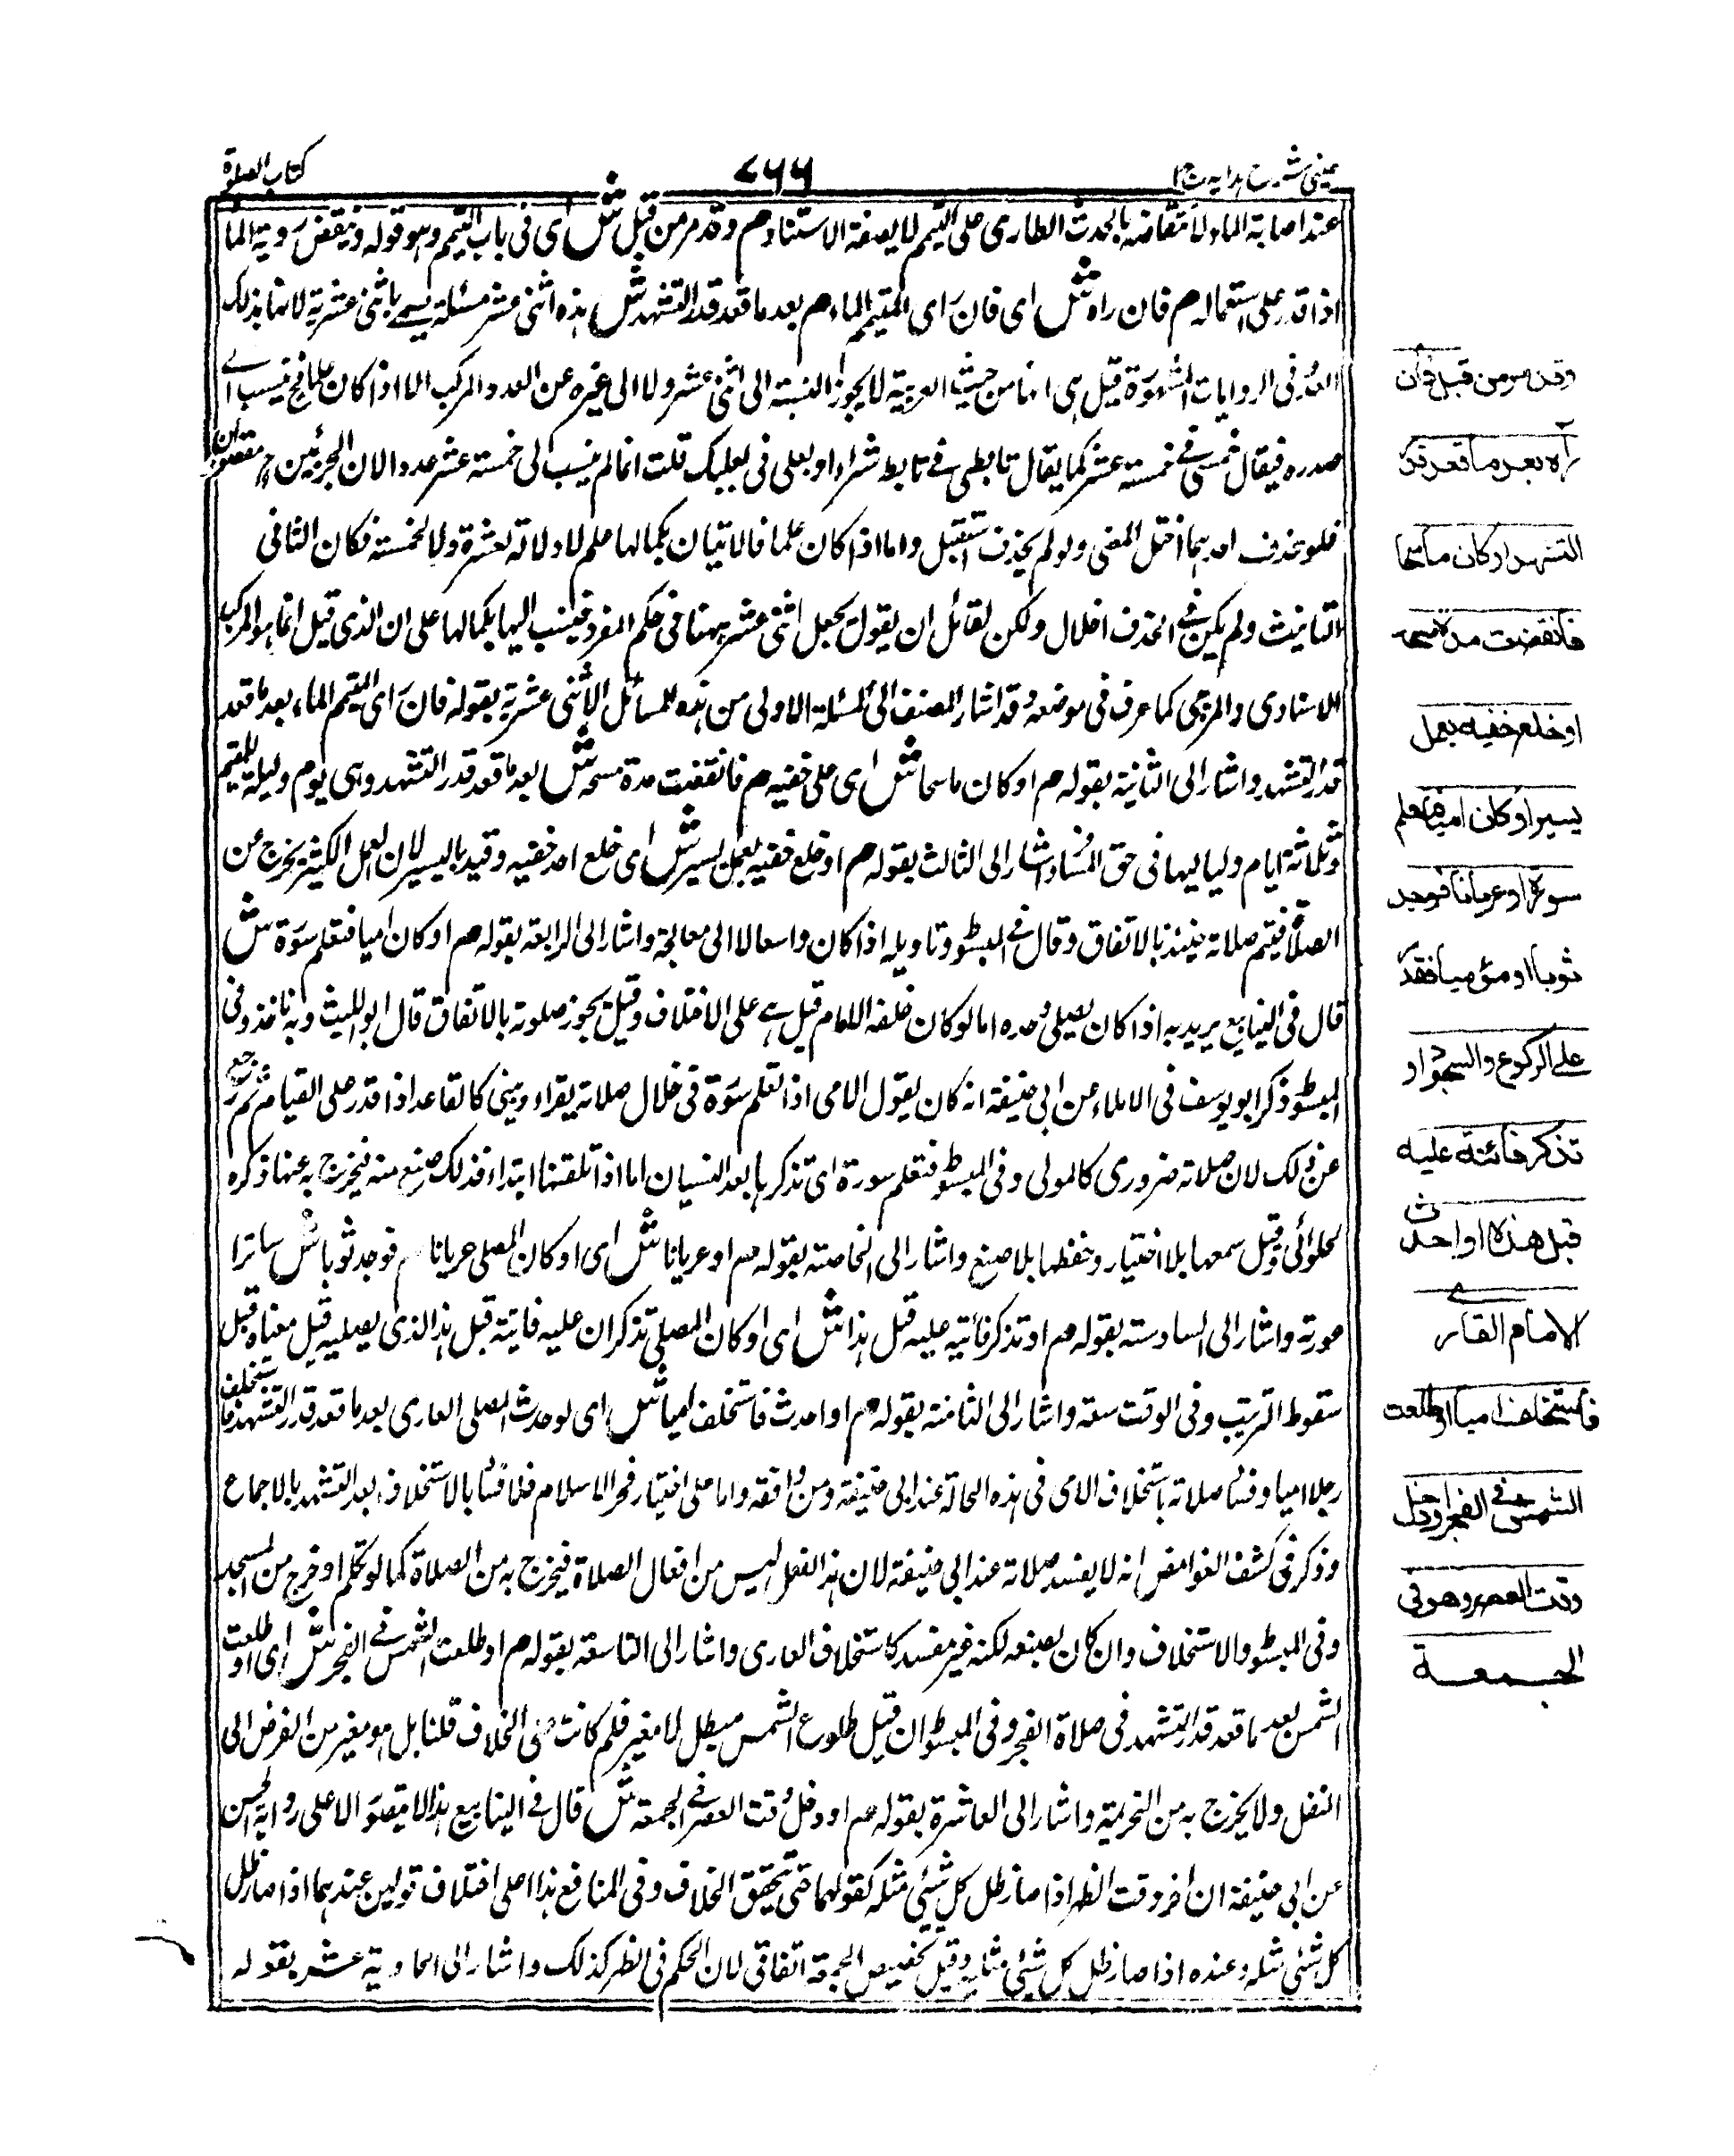 عینی شرح ہدایہ ج ۱
۷۶۶
کتاب الصلوة
عند اصابة الماء لانتقاضه بالحدث الطاری علی التیمم لا بصفة الاستناد م وقد مر من قبل ش ای فی باب التیمم وہو قوله وینقض رویة الماء
اذا قدر علی استعماله م فان راه ش ای فان رای المتیمم الماء م بعد ما قعد قدر التشہد ش ہذه اثنی عشر مسئلة یسمے باثنی عشریة لانہا بذلک
العدد فی الروایات المشہورة قیل ہی انہا من حیث العربیة لا یجوز النسبة الی اثنی عشر ولا الی غیره عن العدد المرکب الا اذا کان علما فح ینسب الے
صدره فیقال خمسی فے خمسة عشر کما یقال تابطی فے تابط شرا او بعلی فی بعلبک قلت انما لم ینسب الی خمسة عشر عددا لان الجزئین ح مقصودان
فلو یحذف احدہما اختل المعنی ولو لم یحذف استثقل واما اذا کان علما فالاتیان بکمالہا علم لا دلالة لعشرة ولا لخمسة فکان الثانی
التانیث ولم یکن فے الحذف اخلال ولکن لقائل ان یقول یجعل اثنی عشر ہہنا فی حکم المفرد فینسب الیہا بکمالہا علی ان الذی قیل انما ہو المرکب
الاسنادی والمزجی کما عرف فی موضعه وقد اشار المصنف الی المسئلة الاولی من ہذه المسائل الاثنی عشریة بقوله فان رای المتیمم الماء بعد ما قعد
قدر التشہد واشار الی الثانیة بقوله م او کان ماسحا ش ای علی خفیه م فانقضت مدة مسحه ش بعد ما قعد قدر التشہد وہی یوم ولیلة للمقیم
وثلاثة ایام ولیالیہا فی حق المسافر واشار الی الثالث بقوله م او خلع خفیه بعمل یسیر ش ای خلع احد خفیه وقید بالیسیر لان العمل الکثیر یخرج عن
الصلاة فیتم صلاته حینئذ بالاتفاق وقال فے المبسوط وتاویله اذا کان واسعا لا الی معالجة واشار الی الرابعة بقوله م او کان امیا فتعلم سورة ش
قال فی الینابیع یرید به اذا کان یصلی وحده اما لو کان خلف الامام قیل ہے علی الاختلاف وقیل یجوز صلوته بالاتفاق قال ابو اللیث وبه ناخذ وفی
المبسوط ذکر ابو یوسف فی الاملاء عن ابی حنیفة انه کان یقول الامی اذا تعلم سورة فی خلال صلاته یقرا ویبنی کالقاعد اذا قدر علی القیام ثم رجع
عن ذلک لان صلاته ضروری کالمولی وفی المبسوط فتعلم سورة ای تذکر ہا بعد النسیان اما اذا تلقنہا ابتداء فذلک صنع منه فیخرج به عنہا ذکره
الحلوائی وقیل سمعہا بلا اختیار وحفظہا بلا صنع واشار الی الخامسة بقوله م او عریانا ش ای او کان المصلی عریانا م فوجد ثوبا ش ساترا
عورته واشار الی السادسة بقوله م او تذکر فائتة علیه قبل ہذا ش ای او کان المصلی تذکر ان علیه فایتة قبل ہذا الذی یصلیه قیل معناه قبل
سقوط الترتیب وفی الوقت سعة واشار الی الثامنة بقوله م او احدث فاستخلف امیا ش ای لو حدث المصلی العاری بعد ما قعد قدر التشہد فاستخلف
رجلا امیا وفسد صلاته باستخلاف الامی فی ہذه الحالة عند ابی حنیفة ومن وافقه واما علی اختیار فخر الاسلام فلا فساد بالاستخلاف بعد التشہد بالاجماع
وذکر فی کشف الغوامض انه لا یفسد صلاته عند ابی حنیفة لان ہذا الفعل لیس من افعال الصلاة فیخرج به من الصلاة کما لو تکلم او خرج من المسجد
وفی المبسوط والاستخلاف وان کان بصنعه لکنه غیر مفسد کاستخلاف العاری واشار الی التاسعة بقوله م او طلعت الشمس فے الفجر ش ای او طلعت
الشمس بعد ما قعد قدر التشہد فی صلاة الفجر وفی المبسوط ان قیل طلوع الشمس مبطل لا مغیر فلم کانت علی الخلاف قلنا بل ہو مغیر من الفرض الی
النفل ولا یخرج به من التحریمة واشار الی العاشرة بقوله م او دخل وقت العصر فے الجمعة ش قال فے الینابیع ہذا لا یتصور الا علی روایة الحسن
عن ابی حنیفة ان اخر وقت الظہر اذا صار ظل کل شئی مثله کقولہما حتی تحقق الخلاف وفی المنافع ہذا علی اختلاف قولین عندہما اذا صار ظل
کل شئی مثله وعنده اذا صار ظل کل شئی مثلیه وقیل تخصیص الجمعة اتفاقی لان الحکم فی الظہر کذلک واشار الی الحادیة عشر بقوله
وقد مر من قبل فان
رآه بعد ما قعد قدر
التشہد او کان ماسحا
فانقضت مدة مسحه
او خلع خفیه بعمل
یسیر او کان امیا فتعلم
سورة او عریانا فوجد
ثوبا او مومیا فقدر
علے الرکوع والسجود او
تذکر فائتة علیه
قبل هذه او احدث
الامام القاری
فاستخلف امیا او طلعت
الشمس فے الفجر او دخل
وقت العصر وهو فی
الجمعة